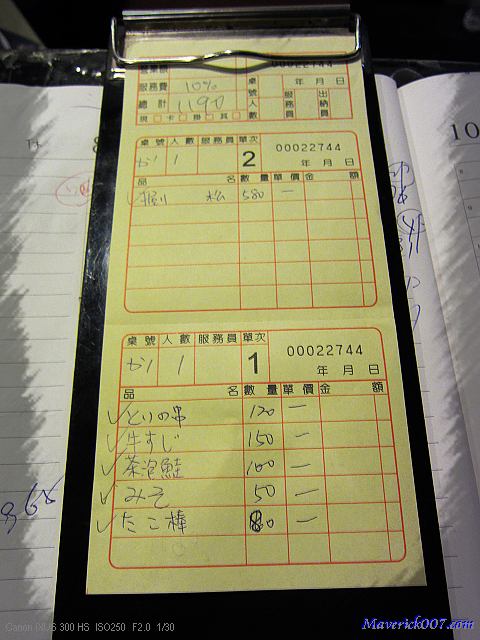 營業額
服務費 10%
總計 1190
現□卡□掛□其□
00022744
年 月 日
桌號 人數 服務員 出納員
桌號 人數 服務員 單次
1 2 00022744
年 月 日
品名 數量 單價 金額
握り 松 580 一
桌號 人數 服務員 單次
1 1 00022744
年 月 日
品名 數量 單價 金額
とりの串 120 一
牛すじ 150 一
茶泡鮭 100 一
みそ 50 一
たこ棒 80 一
10
Canon IXUS 300 HS ISO250 F2.0 1/30
Maverick007.com